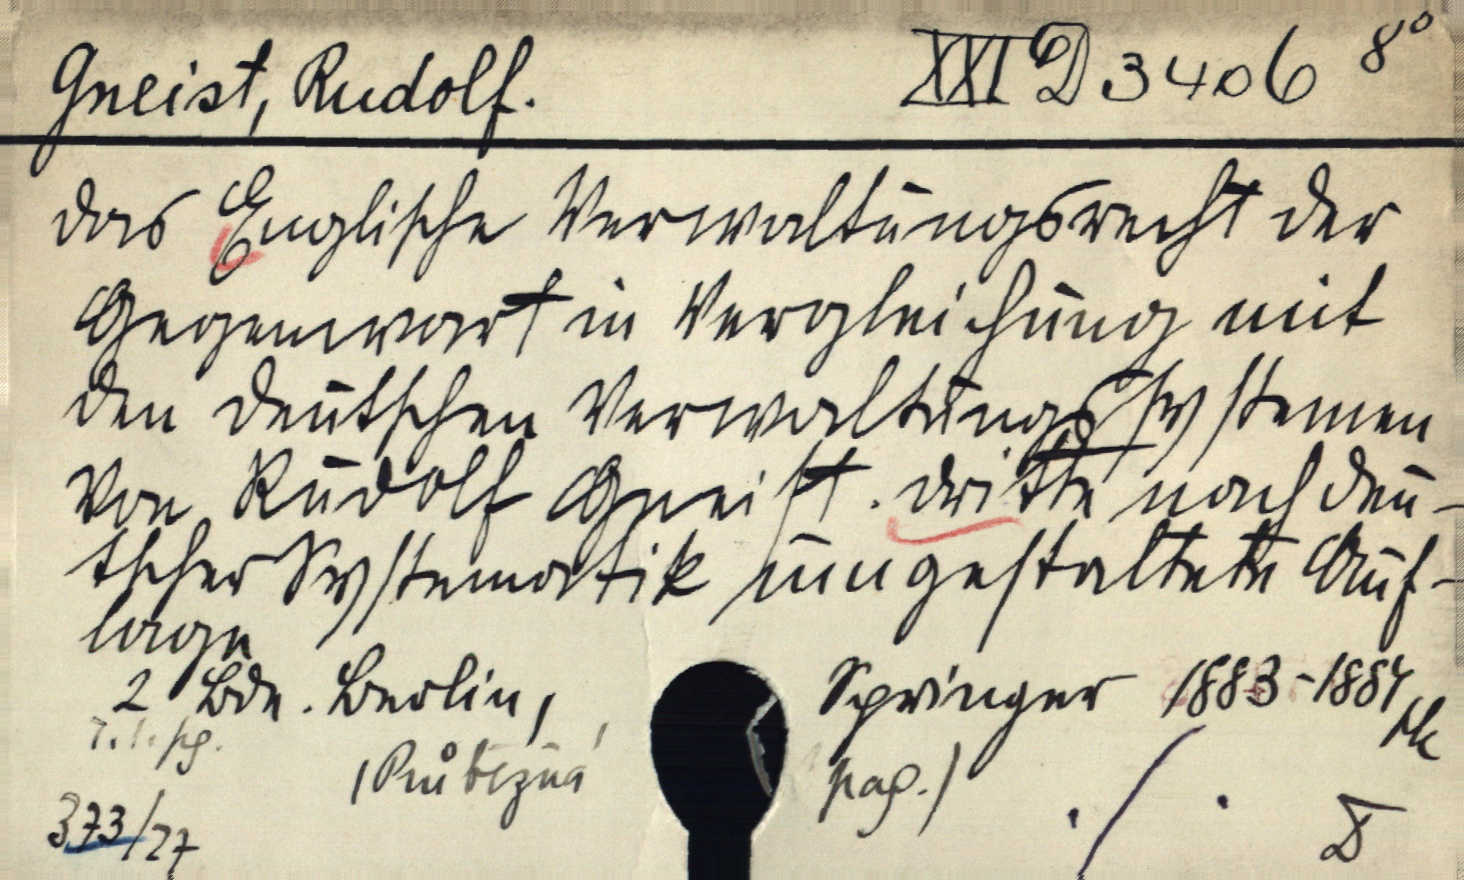 Gneist, Rudolf. XXI D 3406 8°
Das Englische Verwaltungsrecht der
Gegenwart in Vergleichung mit
den deutschen Verwaltungssystemen
von Rudolf Gneist. Dritte nach deu-
tscher Systematik umgestaltete Auf-
lage
2 Bde. Berlin, Springer 1883-1884
(Průběžná pag.)
373/27